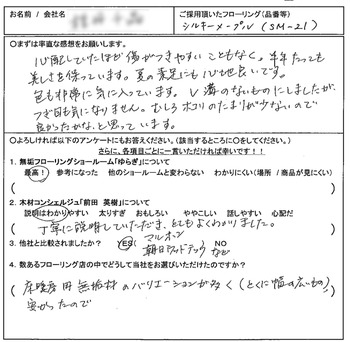 お名前 / 会社名
ご採用頂いたフローリング(品番等)
シルキーメープルV (SM-21)
○まずは率直な感想をお願いします。
心配していたほど傷がつきやすいこともなく。半年たっても
美しさを保っています。夏の素足にも心地良いです。
色も非常に気に入っています。V溝のないものにしましたが、
つぎ目も気になりません。むしろホコリのたまりが少ないので
良かったかな、と思っています。
○よろしければ以下のアンケートにもお答えください。(該当するところに○をしてください。)
さらに、各項目ごとに一言いただければ幸いです!!
1. 無垢フローリングショールーム「ゆらぎ」について
最高! 参考になった 他のショールームと変わらない わかりにくい(場所 / 商品が見にくい)
2. 木材コンシェルジュ「前田 英樹」について
説明はわかりやすい 太りすぎ おもしろい ややこしい 話しやすい 心配だ
丁寧に説明していただき、とてもよくわかりました。
3. 他社と比較されましたか? YES NO
マルホン
朝日ウッドテック など
4. 数あるフローリング店の中でどうして当社をお選びいただけたのですか?
床暖房用無垢材のバリエーションが多く(とくに幅の広いもの)
安かったので